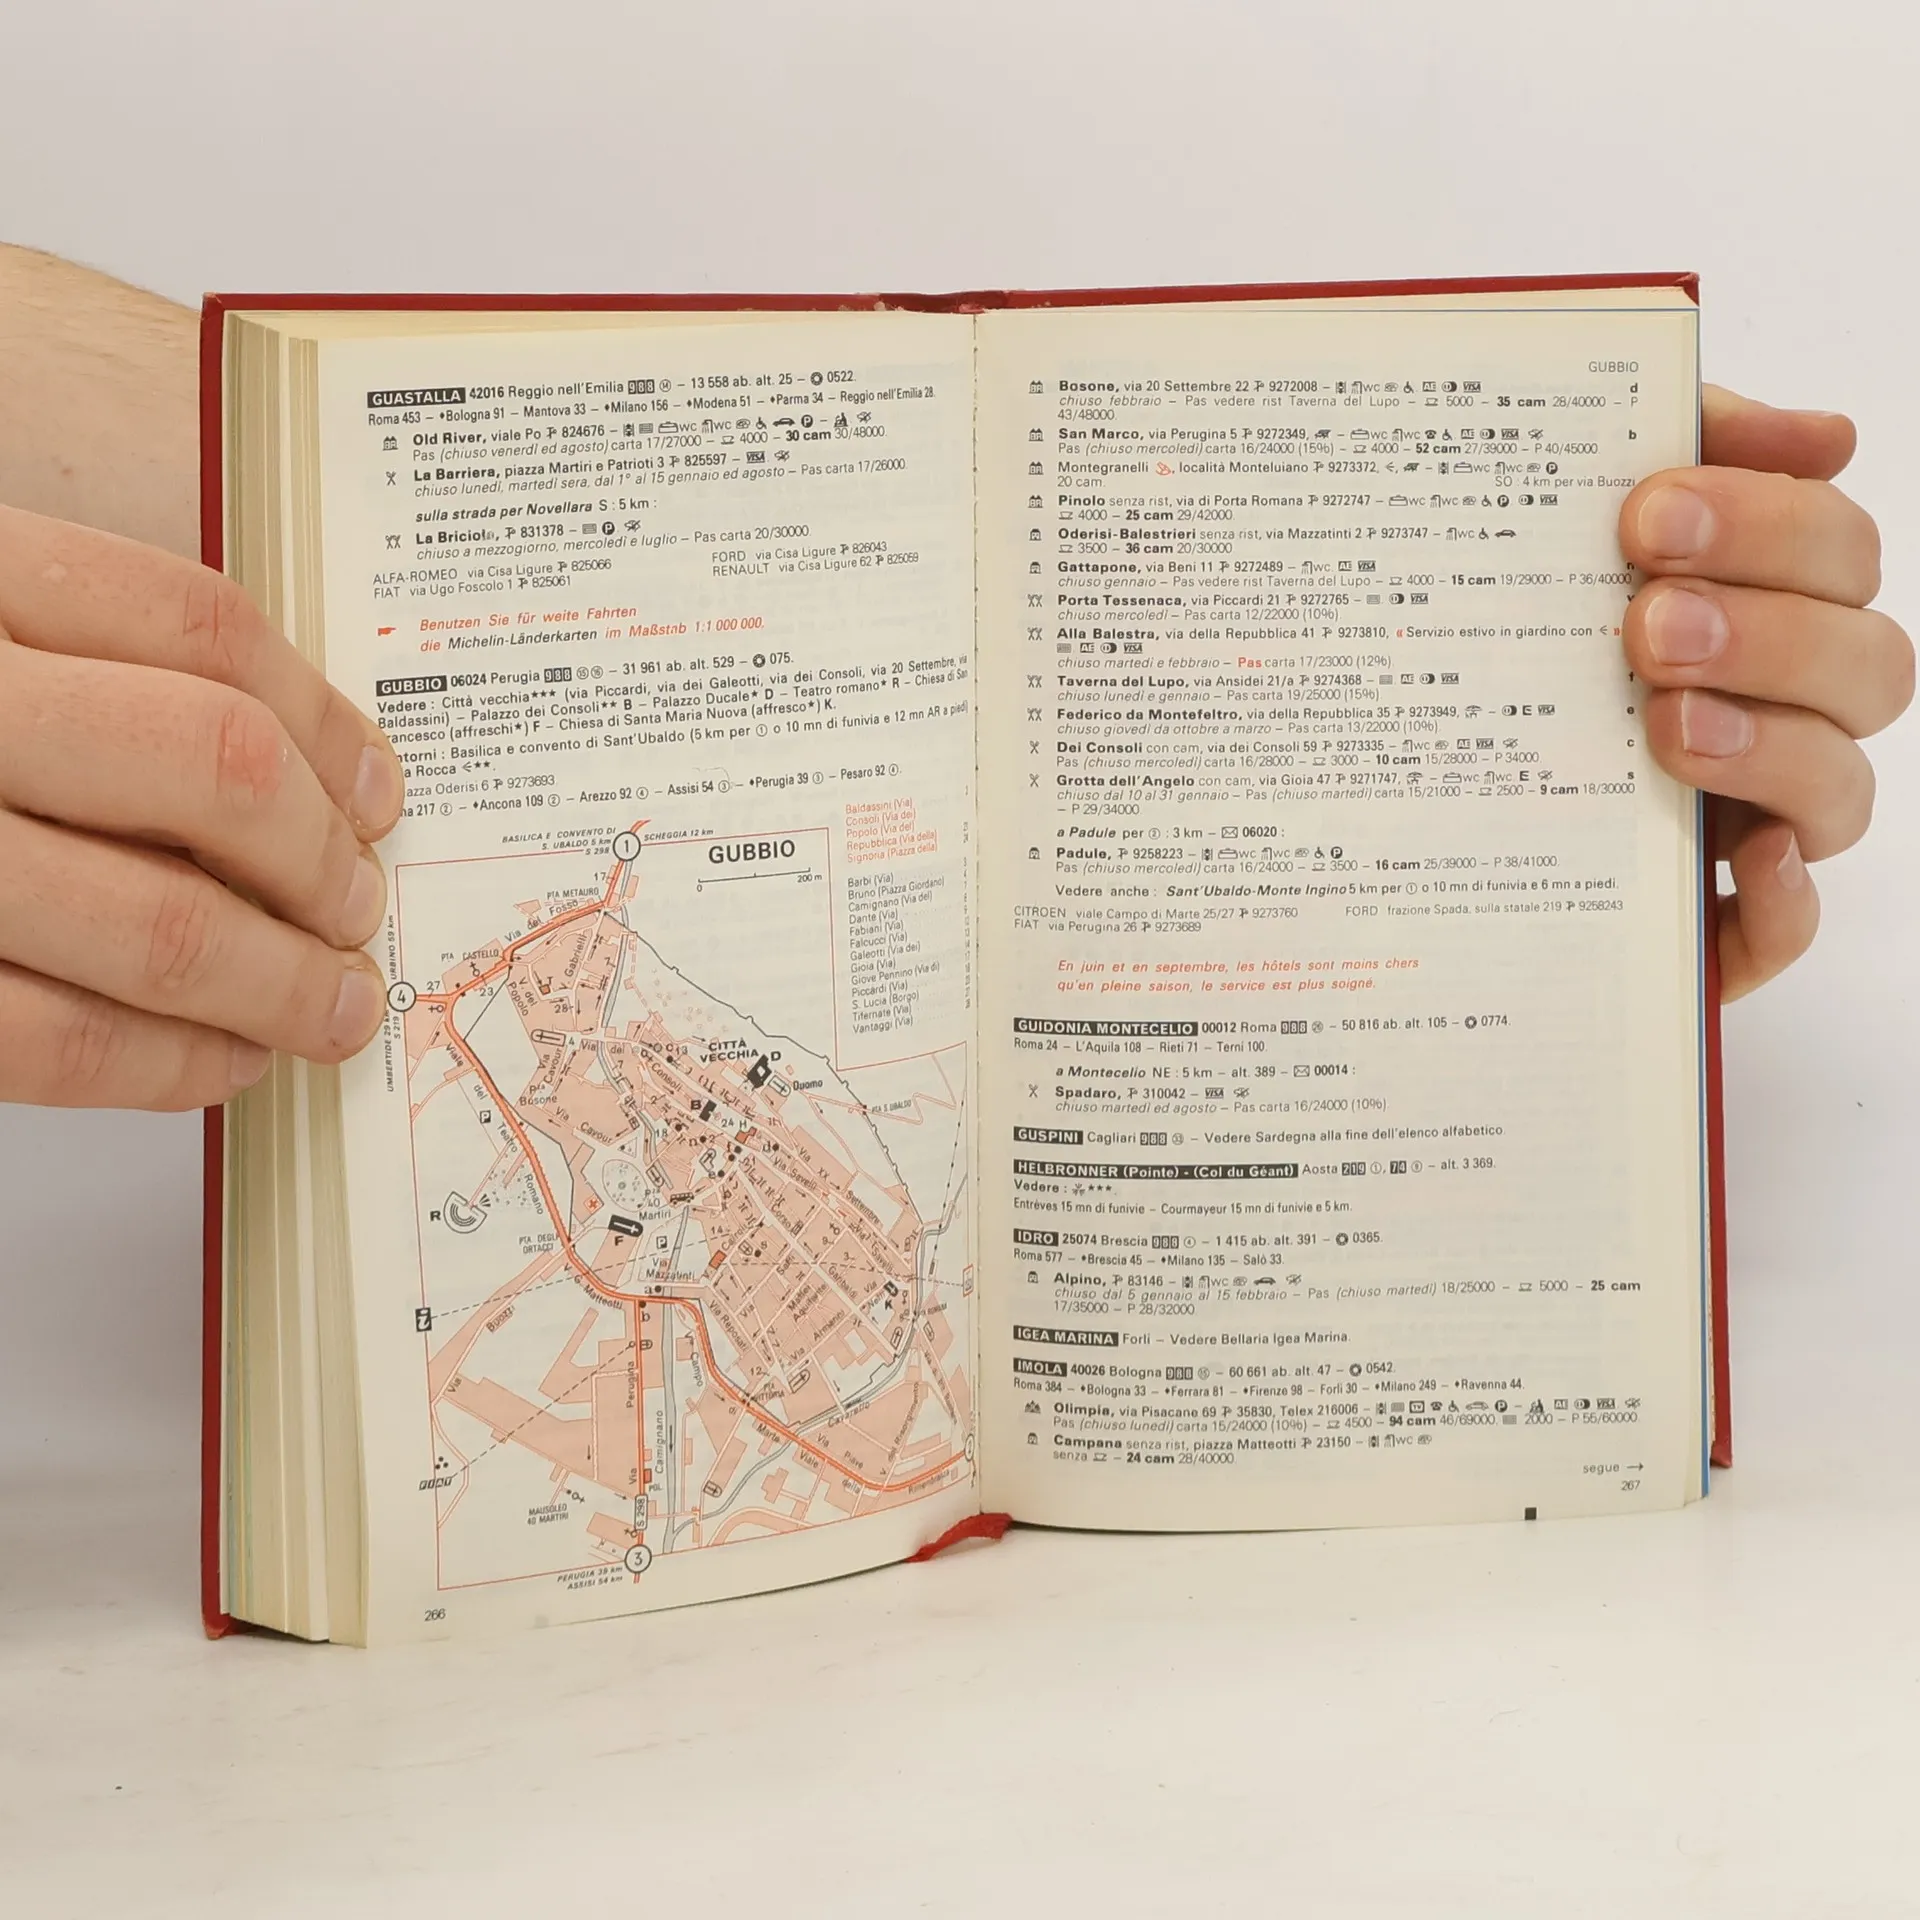 GUASTALLA 42016 Reggio nell'Emilia 988 ⑭ – 13 558 ab. alt. 25 – 0522.
Roma 453 – ♦Bologna 91 – Mantova 33 – ♦Milano 156 – ♦Modena 51 – ♦Parma 34 – Reggio nell'Emilia 28.
Old River, viale Po 824676 – wc wc P –
Pas (chiuso venerdì ed agosto) carta 17/27000 – 4000 – 30 cam 30/48000.
La Barriera, piazza Martiri e Patrioti 3 825597 – VISA
chiuso lunedì, martedì sera, dal 1° al 15 gennaio ed agosto – Pas carta 17/26000.
sulla strada per Novellara S : 5 km :
La Briciola, 831378 – P
chiuso a mezzogiorno, mercoledì e luglio – Pas carta 20/30000.
ALFA-ROMEO via Cisa Ligure 825066
FIAT via Ugo Foscolo 1 825061
FORD via Cisa Ligure 826043
RENAULT via Cisa Ligure 62 825059
Benutzen Sie für weite Fahrten
die Michelin-Länderkarten im Maßstab 1:1 000 000.
GUBBIO 06024 Perugia 988 ⑮ ⑯ – 31 961 ab. alt. 529 – 075.
Vedere : Città vecchia*** (via Piccardi, via dei Galeotti, via dei Consoli, via 20 Settembre, via
Baldassini) – Palazzo dei Consoli** B – Palazzo Ducale* D – Teatro romano* R – Chiesa di San
rancesco (affreschi*) F – Chiesa di Santa Maria Nuova (affresco*) K.
ntorni : Basilica e convento di Sant'Ubaldo (5 km per ① o 10 mn di funivia e 12 mn AR a piedi)
a Rocca <**.
azza Oderisi 6 9273693.
na 217 ② – ♦Ancona 109 ② – Arezzo 92 ④ – Assisi 54 ③ – ♦Perugia 39 ③ – Pesaro 92 ④.
Baldassini (Via)
Consoli (Via dei)
Popolo (Via del)
Repubblica (Via della)
Signoria (Piazza della)
Barbi (Via)
Bruno (Piazza Giordano)
Camignano (Via del)
Dante (Via)
Fabiani (Via)
Falcucci (Via)
Galeotti (Via dei)
Gioia (Via)
Giove Pennino (Via di)
Piccardi (Via)
S. Lucia (Borgo)
Tifernate (Via)
Vantaggi (Via)
BASILICA E CONVENTO DI
S. UBALDO 5 km
S 298
1
SCHEGGIA 12 km
GUBBIO
0 200 m
17
PTA METAURO
Via del Fosso
URBINO 59 km
PTA CASTELLO
Gabrielli
27
23
4
V. del Popolo
28
UMBERTIDE 29 km
S 219
CITTÀ VECCHIA
D
Duomo
Via dei Consoli
13
Via Cavour
Pza Bosone
Via Cavour
Viale del Teatro Romano
P
B
24 H
18
PTA S. UBALDO
Via XX Settembre
Via Savelli
R
40 Martiri
F
14
PTA DEGLI ORTACCI
P
Via Mazzatinti
V. G. Matteotti
a
b
K
Garibaldi
Armanni
Via Reposati
i
Via Buozzi
Via Perugina
Camignano
12
PTA VITTORIA
Cavarello
Via Campo di Marte
Viale della
Via Piave
Rimembranza
FIAT
MAUSOLEO
40 MARTIRI
POL.
S 298
3
PERUGIA 39 km
ASSISI 54 km
266
GUBBIO
Bosone, via 20 Settembre 22 9272008 – wc AE VISA d
chiuso febbraio – Pas vedere rist Taverna del Lupo – 5000 – 35 cam 28/40000 – P
43/48000.
San Marco, via Perugina 5 9272349, – wc wc AE VISA b
Pas (chiuso mercoledì) carta 16/24000 (15%) – 4000 – 52 cam 27/39000 – P 40/45000.
Montegranelli, località Monteluiano 9273372, <, – wc wc P
20 cam. SO : 4 km per via Buozzi
Pinolo senza rist, via di Porta Romana 9272747 – wc wc P VISA
4000 – 25 cam 29/42000.
Oderisi-Balestrieri senza rist, via Mazzatinti 2 9273747 – wc
3500 – 36 cam 20/30000
Gattapone, via Beni 11 9272489 – wc. AE VISA
chiuso gennaio – Pas vedere rist Taverna del Lupo – 4000 – 15 cam 19/29000 – P 36/40000
Porta Tessenaca, via Piccardi 21 9272765 – VISA
chiuso mercoledì – Pas carta 12/22000 (10%).
Alla Balestra, via della Repubblica 41 9273810, « Servizio estivo in giardino con < »
AE VISA
chiuso martedì e febbraio – Pas carta 17/23000 (12%).
Taverna del Lupo, via Ansidei 21/a 9274368 – AE VISA f
chiuso lunedì e gennaio – Pas carta 19/25000 (15%).
Federico da Montefeltro, via della Repubblica 35 9273949, – E VISA e
chiuso giovedì da ottobre a marzo – Pas carta 13/22000 (10%)
Dei Consoli con cam, via dei Consoli 59 9273335 – wc AE VISA c
Pas (chiuso mercoledì) carta 16/28000 – 3000 – 10 cam 15/28000 – P 34000.
Grotta dell'Angelo con cam, via Gioia 47 9271747, – wc wc E s
chiuso dal 10 al 31 gennaio – Pas (chiuso martedì) carta 15/21000 – 2500 – 9 cam 18/30000
– P 29/34000.
a Padule per ② : 3 km – 06020 :
Padule, 9258223 – wc wc P
Pas (chiuso mercoledì) carta 16/24000 – 3500 – 16 cam 25/39000 – P 38/41000.
Vedere anche : Sant'Ubaldo-Monte Ingino 5 km per ① o 10 mn di funivia e 6 mn a piedi.
CITROEN viale Campo di Marte 25/27 9273760
FIAT via Perugina 26 9273689
FORD frazione Spada, sulla statale 219 9258243
En juin et en septembre, les hôtels sont moins chers
qu'en pleine saison, le service est plus soigné.
GUIDONIA MONTECELIO 00012 Roma 988 ㉖ – 50 816 ab. alt. 105 – 0774.
Roma 24 – L'Aquila 108 – Rieti 71 – Terni 100.
a Montecelio NE : 5 km – alt. 389 – 00014 :
Spadaro, 310042 – VISA
chiuso martedì ed agosto – Pas carta 16/24000 (10%)
GUSPINI Cagliari 988 ㉝ – Vedere Sardegna alla fine dell'elenco alfabetico.
HELBRONNER (Pointe) - (Col du Géant) Aosta 219 ①, 74 ⑨ – alt. 3 369.
Vedere : ***.
Entrèves 15 mn di funivie – Courmayeur 15 mn di funivie e 5 km.
IDRO 25074 Brescia 988 ④ – 1 415 ab. alt. 391 – 0365.
Roma 577 – ♦Brescia 45 – ♦Milano 135 – Salò 33.
Alpino, 83146 – wc
chiuso dal 5 gennaio al 15 febbraio – Pas (chiuso martedì) 18/25000 – 5000 – 25 cam
17/35000 – P 28/32000.
IGEA MARINA Forlì – Vedere Bellaria Igea Marina.
IMOLA 40026 Bologna 988 ⑮ – 60 661 ab. alt. 47 – 0542.
Roma 384 – ♦Bologna 33 – ♦Ferrara 81 – ♦Firenze 98 – Forlì 30 – ♦Milano 249 – ♦Ravenna 44.
Olimpia, via Pisacane 69 35830, Telex 216006 – TV P – AE VISA
Pas (chiuso lunedì) carta 15/24000 (10%) – 4500 – 94 cam 46/69000, 2000 – P 55/60000.
Campana senza rist, piazza Matteotti 23150 – wc
senza – 24 cam 28/40000.
segue →
267